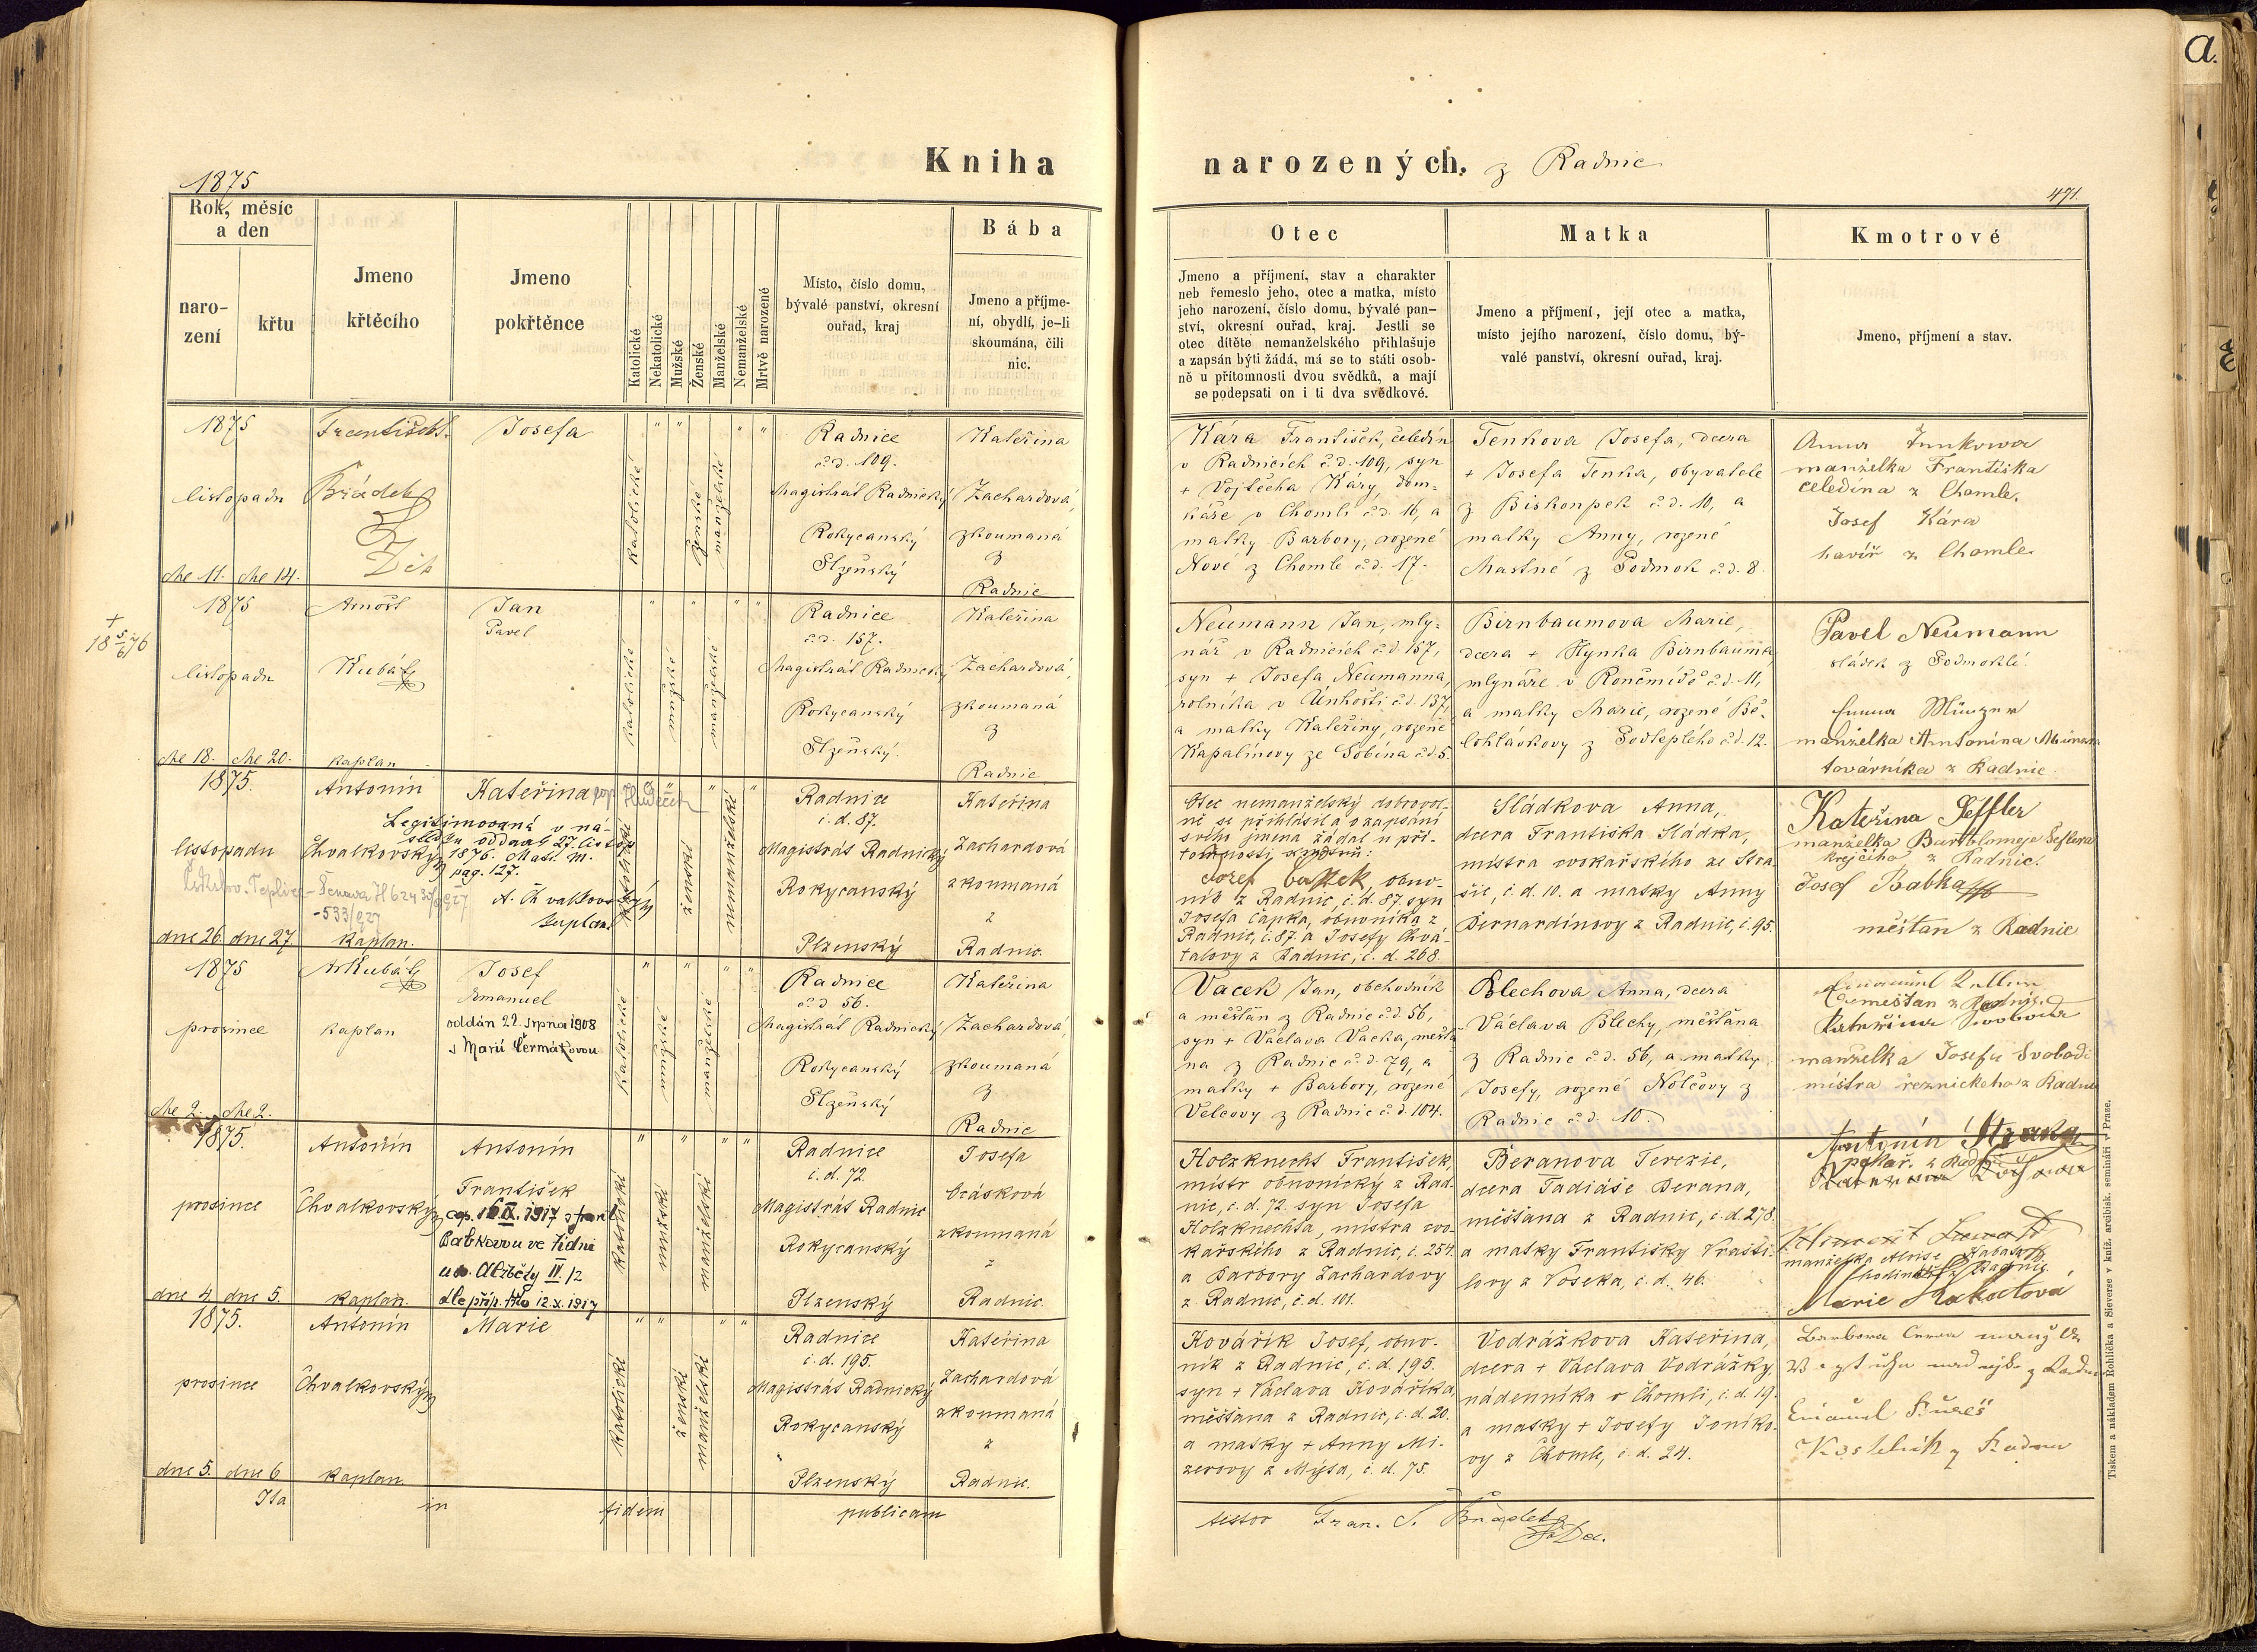 Kniha narozených. z Radnic
1875
471.
a.
Rok, měsíc
a den
naro-
zení
křtu
Jmeno
křtěcího
Jmeno
pokřtěnce
Katolické
Nekatolické
Mužské
Ženské
Manželské
Nemanželské
Mrtvě narozené
Místo, číslo domu,
bývalé panství, okresní
ouřad, kraj
Bába
Jmeno a příjme-
ní, obydlí, je-li
skoumána, čili
nic.
Otec
Jmeno a příjmení, stav a charakter
neb řemeslo jeho, otec a matka, místo
jeho narození, číslo domu, bývalé pan-
ství, okresní ouřad, kraj. Jestli se
otec dítěte nemanželského přihlašuje
a zapsán býti žádá, má se to státi osob-
ně u přítomnosti dvou svědků, a mají
se podepsati on i ti dva svědkové.
Matka
Jmeno a příjmení, její otec a matka,
místo jejího narození, číslo domu, bý-
valé panství, okresní ouřad, kraj.
Kmotrové
Jmeno, příjmení a stav.
1875
listopadu
dne 11. dne 14.
Josefa
katolické
ženské
manželské
Radnice
č.d. 109.
Magistrát Radnický
Rokycanský
Plzeňský
Kateřina
Zachardová,
zkoumaná
z
Radnic
Kára František, čeledín
v Radnicích č.d. 109, syn
+ Vojtěcha Káry, dom-
káře v Chomli č.d. 16, a
matky Barbory, rozené
Nové z Chomle č.d. 17.
Tenkova Josefa, dcera
+ Josefa Tenka, obyvatele
z Biskoupek č.d. 10, a
matky Anny, rozené
Mastné z Podmok č.d. 8.
Anna
manželka Františka
čeledína z Chomle.
Josef Kára
havíř z Chomle
+
18 5/6 76
1875
listopadu
dne 18. dne 20.
Arnošt
Kubát
kaplan
Jan
Pavel
katolické
mužské
manželské
Radnice
č.d. 157.
Magistrát Radnický
Rokycanský
Plzeňský
Kateřina
Zachardová,
zkoumaná
z
Radnic
Neumann Jan, mly-
nář v Radnicích č.d. 157,
syn + Josefa Neumanna,
rolníka v Únhošti č.d. 137,
a matky Kateřiny, rozené
Kapalínovy ze Sobína č.d. 5.
Birnbaumova Marie,
dcera + Hynka Birnbauma,
mlynáře v č.d. 11,
a matky Marie, rozené Bě-
lohlávkovy z Podteplého č.d. 12.
Pavel Neumann
sládek z Podmoklí.
manželka Antonína
továrníka z Radnic
1875.
listopadu
dne 26. dne 27.
Antonín
Chvalkovský
kaplan.
Kateřina
Legitimovaná v ná-
sledku oddavek 27. listop.
1876. Matr. M.
pag. 127.
A. Chvalkovský
kaplan
katolické
ženské
nemanželské
Radnice
č.d. 87.
Magistrát Radnický
Rokycanský
Plzenský
Kateřina
Zachardová
zkoumaná
z
Radnic.
Otec nemanželský dobrovol-
ně se přihlásil a o zapsání
svého jmena žádal u pří-
tomnosti svědků:
Josef Čapek, obuv-
ník z Radnic, č.d. 87. syn
Josefa Čapka, obuvníka z
Radnic, č. 87. a Josefy Chvá-
talovy z Radnic, č. d. 268.
Sládkova Anna,
dcera Františka Sládka,
mistra cvokařského ze Stra-
šic, č.d. 10. a matky Anny
Bernardínovy z Radnic, č. 95.
Kateřina Šeffler
manželka Bartolomeje Šeflera
krejčího z Radnic.
Josef Babka
měšťan z Radnic
1875
prosince
dne 2. dne 2.
Ar Kubát
kaplan
Josef
Emanuel
oddán 22. srpna 1908
s Marií Čermákovou
katolické
mužské
manželské
Radnice
č.d. 56.
Magistrát Radnický
Rokycanský
Plzeňský
Kateřina
Zachardová,
zkoumaná
z
Radnic
Vacek Jan, obchodník
a měšťan z Radnic č.d. 56,
syn + Václava Vacka, měšťa-
na z Radnic č.d. 79, a
matky + Barbory, rozené
Velcovy z Radnic č.d. 104.
Blechova Anna, dcera
Václava Blechy, měšťana
z Radnic č.d. 56, a matky
Josefy, rozené Nolčovy z
Radnic č.d. 10.
měšťan z Radnic
Kateřina Svoboda
manželka Josefa Svobodi
mistra řeznického z Radnic
1875.
prosince
dne 4. dne 5.
Antonín
Chvalkovský
kaplan.
Antonín
František
Babkovou ve Vídni
u sv. Alžběty IV./2
dle příp. 12.X.1917
katolické
mužské
manželské
Radnice
č.d. 72.
Magistrát Radnic
Rokycanský
Plzenský
Josefa
Ocásková
zkoumaná
z
Radnic.
Holzknecht František,
mistr obuvnický z Rad-
nic, č.d. 72. syn Josefa
Holzknechta, mistra cvo-
kařského z Radnic, č. 254.
a Barbory Zachardovy
z Radnic, č.d. 101.
Beranova Terezie,
dcera Tadiáše Berana,
měšťana z Radnic, č.d. 278.
a matky Františky Vrašti-
lovy z Voseka, č.d. 46.
Antonín Straka
pekař z Radnic
manželka Aloise
Marie
1875.
prosince
dne 5. dne 6
Antonín
Chvalkovský
kaplan
Marie
katolické
ženské
manželské
Radnice
č.d. 195.
Magistrát Radnický
Rokycanský
Plzenský
Kateřina
Zachardová
zkoumaná
z
Radnic.
Kovářík Josef, obuv-
ník z Radnic, č.d. 195.
syn + Václava Kováříka,
měšťana z Radnic, č.d. 20.
a matky + Anny Mi-
zerovy z Mýta, č.d. 75.
Vodrážkova Kateřina,
dcera + Václava Vodrážky,
nádenníka v Chomli, č.d. 19.
a matky + Josefy Joníko-
vy z Chomle, č.d. 24.
Barbora
Ita in fidem publicam
testor Fran. S.
Tiskem a nákladem Rohlíčka a Sieverse v kníž. arcibisk. semináři v Praze.